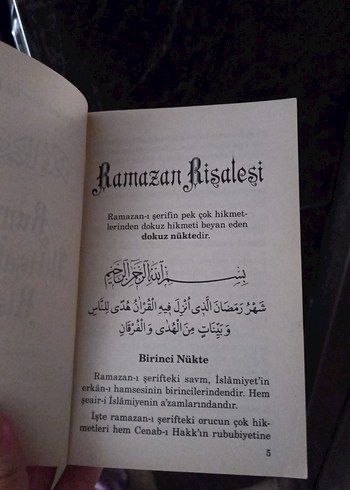 Ramazan Risalesi
Ramazan-ı şerifin pek çok hikmet-
lerinden dokuz hikmeti beyan eden
dokuz nüktedir.
بِسْمِ اللّٰهِ الرَّحْمٰنِ الرَّحِيمِ
شَهْرُ رَمَضَانَ الَّذِى اُنْزِلَ فِيهِ الْقُرْاٰنُ هُدًى لِلنَّاسِ
وَ بَيِّنَاتٍ مِنَ الْهُدٰى وَ الْفُرْقَانِ
Birinci Nükte
Ramazan-ı şerifteki savm, İslâmiyet'in
erkân-ı hamsesinin birincilerindendir. Hem
şeair-i İslâmiyenin a'zamlarındandır.
İşte ramazan-ı şerifteki orucun çok hik-
metleri hem Cenab-ı Hakk'ın rububiyetine
5